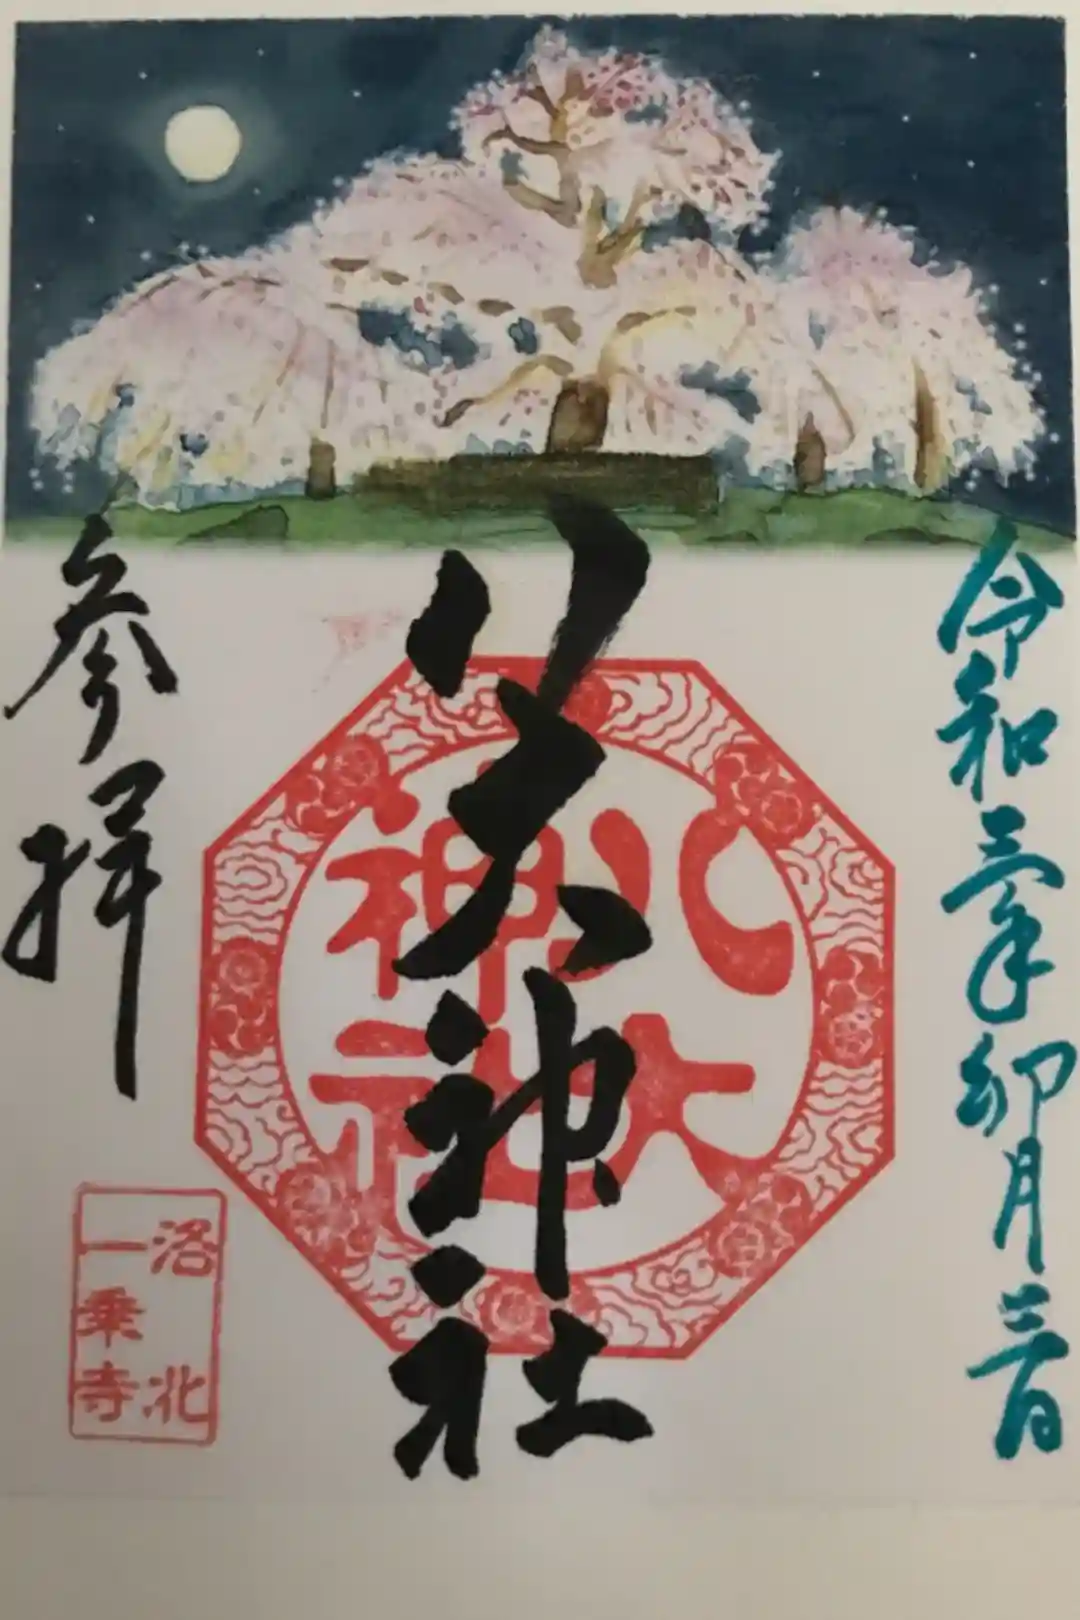 令和三年卯月三日
八大神社
八大神社
参拝
洛北
一乗寺